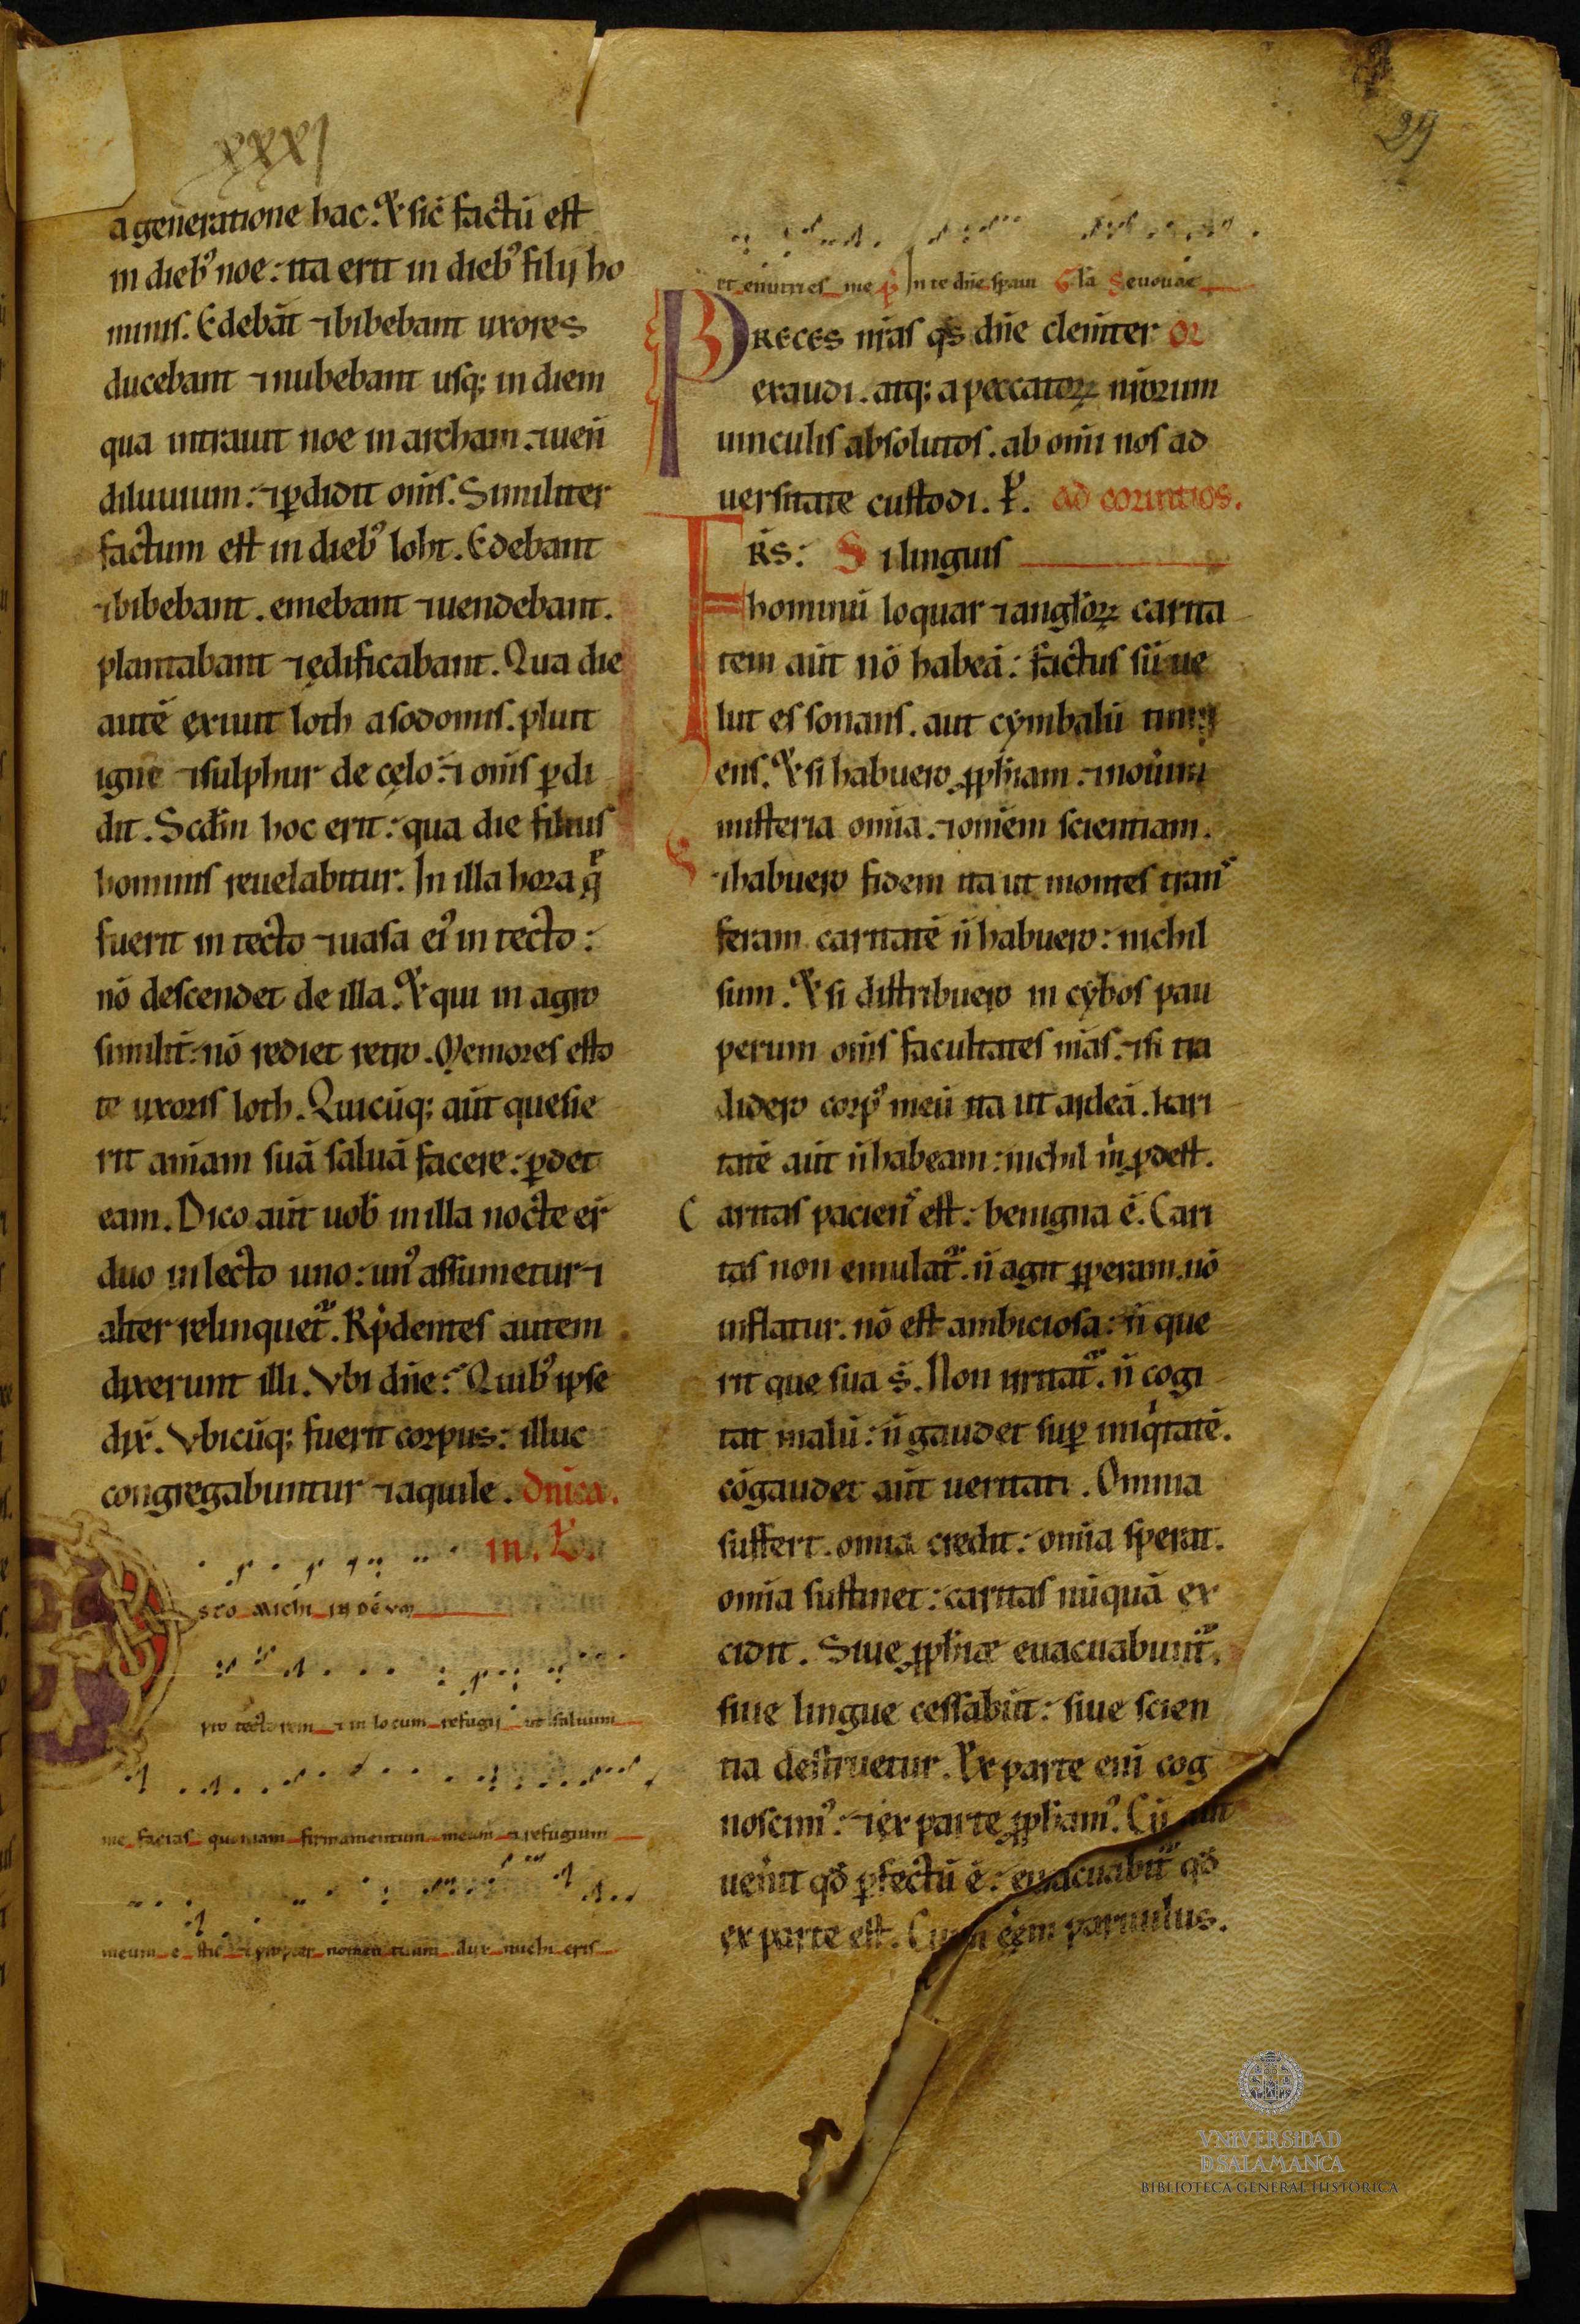 xxxj
29
a generatione hac. Et sic̄ factū est
in dieb᷒ noe: ita erit in dieb᷒ filij ho
minis. Edebāt ⁊ bibebant uxores
ducebant ⁊ nubebant usq; in diem
qua intrauit noe in archam. ⁊ ueń
diluuium: ⁊ ꝑdidit om̄s. Similiter
factum est in dieb᷒ loht. Edebant
⁊ bibebant. emebant ⁊ uendebant.
plantabant ⁊ ędificabant. Qua die
autē exiuit loth a sodomis. pluit
igne ⁊ sulphur de cęlo: ⁊ om̄s ꝑdi
dit. Scd̄m hoc erit: qua die filius
hominis reuelabitur. In illa hora q̄
fuerit in tecto ⁊ uasa ei᷒ in tecto:
nō descendet de illa. Et qui in agro
similit̄: nō rediet retro. Memores esto
te uxoris loth. Quicūq; aūt quesie
rit animam suā saluā facere: ꝑdet
eam. Dico aūt uob̄ in illa nocte er̄
duo in lecto uno: un᷒ assumetur ⁊
alter relinquet᷑. Rn̄dentes autem
dixerunt illi. Vbi dn̄e? Quib᷒ ipse
dix̄. Vbicūq; fuerit corpus: illuc
congregabuntur ⁊ aquile. Dnīca.
in. L.
Esto michi in dēvm
pro tectorem ⁊ in locum refugij ut saluum
me facias quoniam firmamentum meum ⁊ refugium
meum e stu ⁊ propter nomen tuum dux michi eris
et enutri es me p̄ In te dn̄e sp̄aui Gl̄a Seuouae
PRECES nr̄as qs̄ dn̄e clem̄ter or̄
exaudi. atq; a peccatoꝝ nr̄orum
uinculis absolutos. ab om̄i nos ad
uersitate custodi. P̄. ad corintios.
FRS̄: Si linguis
hominū loquar ⁊ angl̄oꝝ carita
tem aūt nō habeā: factus sū ue
lut es sonans. aut cymbalū tinni
ens. Et si habuero ꝓph̄iam. ⁊ nouerim
misteria om̄ia. ⁊ om̄em scientiam.
⁊ habuero fidem ita ut montes trans
feram caritatē n̄ habuero: nichil
sum. Et si distribuero in cybos pau
perum om̄s facultates m̄as. ⁊ si tra
didero corp᷒ meū ita ut ardeā. kari
tatē aūt n̄ habeam: nichil m̄ ꝓdest.
Caritas paciens est: benigna ē. Cari
tas non emulat᷑. n̄ agit ꝑperam. nō
inflatur. nō est ambiciosa: n̄ que
rit que sua s̄. Non irritat᷑. n̄ cogi
tat malū: n̄ gaudet suꝑ iniqͥtatē.
cōgaudet aūt ueritati. Omnia
suffert. om̄ia credit: om̄ia sperat.
om̄ia sustinet: caritas nūquā ex
cidit. Siue ꝓph̄iæ euacuabunt᷑.
siue lingue cessabūt: siue scien
tia destruetur. Ex parte eni̅ cog
noscim᷒: ⁊ ex parte ꝓph̄am᷒. Cū aūt
uen̄it qd̄ ꝑfectū ē: euacuabit᷑ qd̄
ex parte est. Cum eēm paruulus.
VNIVERSIDAD
D SALAMANCA
BIBLIOTECA GENERAL HISTÓRICA